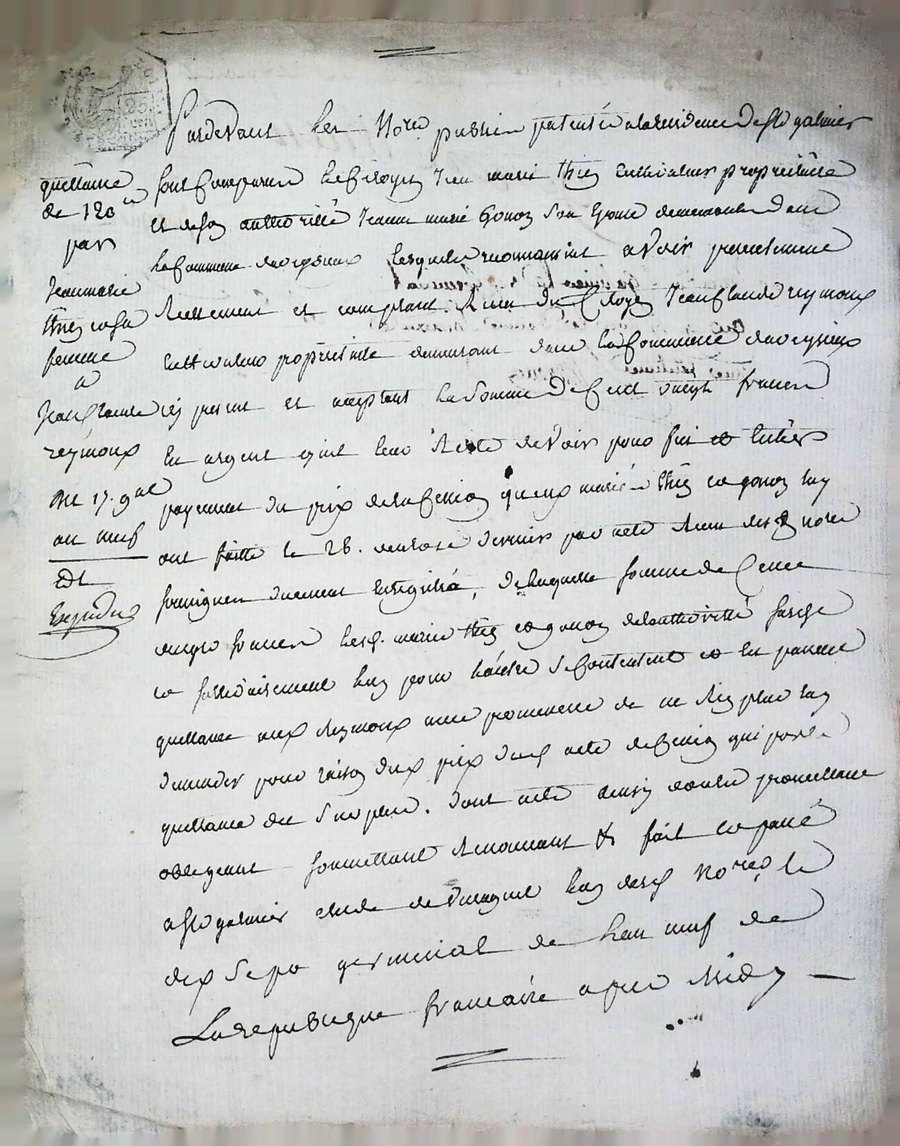 Pardevant les Nores publics patentés a la residence de St galmier
quittance
de 120
par
Jeanmarie
thes et sa
femme
a
Jean Claude
reymoux
du 17. gal
an neuf
Edt
Expedié
sont Comparus le Citoyen Jean marie thes Cultivateur propriétaire
et de son authorité Jeanne marie Gonon son Epouse demeurants dans
la Commune de lesquels reconnoissent avoir presentement
reellement et comptant Receu du Citoyen Jean Claude reymoux
cultivateur propriétaire demeurant dans la Commune de
icy present et acceptant la Somme de Cent vingt francs
En argent qu'il leur Reste devoir pour fin et Entier
payement du prix de la Cession qu'eux mariés thes et gonon luy
ont faitte le 28. dernier par acte Receu desd nores
soussignés duement Enregistré, de laquelle somme de Cent
vingt francs lesd. mariés thes et gonon de lauthorité susd
et solidairement l'un pour l'autre Se Contentent et En passent
quittance aud Reymoux avec promesse de ne Rien plus luy
demander pour raison dud prix dud acte de Cession qui porte
quittance du Surplus. dont acte ainsy voulu promettant
obligeant soumettant Renonçant & fait et passé
a St galmier etude de l'un desd Nores le
dix Sept germinal de l'an neuf de
La republique francaise apres Midy